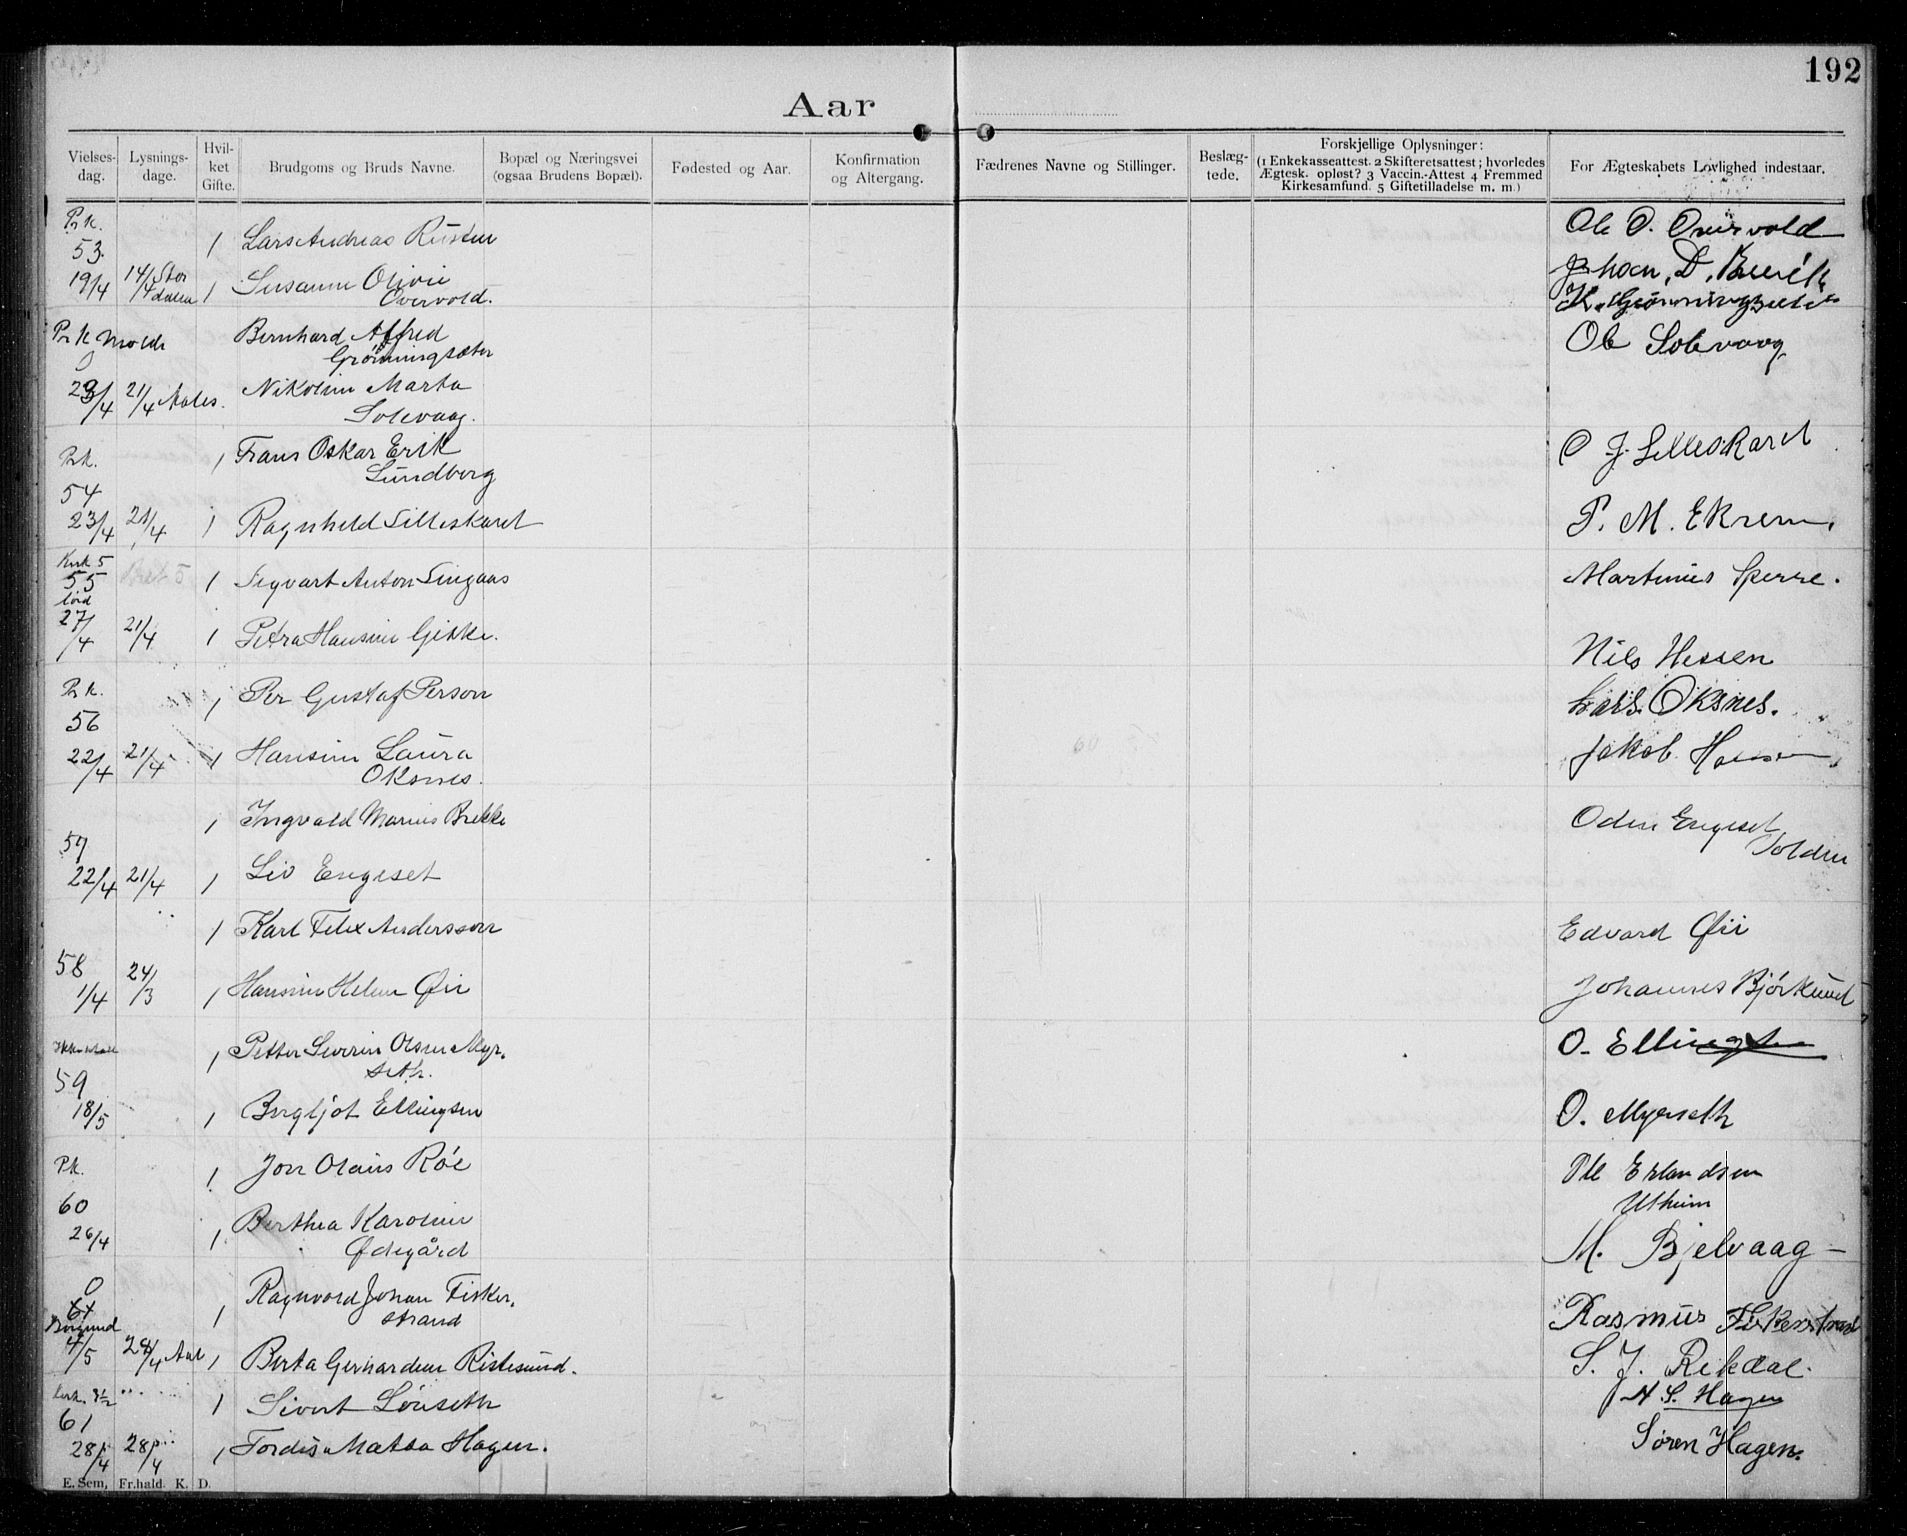 192
Aar
Vielses-dag. Lysnings-dage. Hvil-ket Gifte. Brudgoms og Bruds Navne. Bopæl og Næringsvei (ogsaa Brudens Bopæl). Fødested og Aar. Konfirmation og Altergang. Fædrenes Navne og Stillinger. Beslæg-tede. Forskjellige Oplysninger: (1 Enkekasseattest. 2 Skifteretsattest; hvorledes Ægtesk. opløst? 3 Vaccin.-Attest 4 Fremmed Kirkesamfund. 5 Giftetilladelse m. m.) For Ægteskabets Lovlighed indestaar.
Prk.
53. 1 Lars Andreas Rusten Ole O. Overvold
19/4 14/4 Stordalen 1 Susanne Olivie
Overvold. K. Grønningsæter
Prk Molde Bernhard Alfred Ole Solevaag
Grønningsæter
23/4 21/4 Aales. Nikoline Marta
Solevaag.
Prk. 1 Frans Oskar Erik O J. Lilleskaret
Lundberg
54
23/4 21/4 1 Ragnhild Lilleskaret P. M. Ekrem.
Kirk 5
55 1 Sigvart Anton Singaas Martinus Sperre.
lørd
27/4 21/4 1 Petra Hansine Giske.
Nils Hessen
Prk. 1 Per Gustaf Person Lars Oksnes.
56
22/4 21/4 1 Hansine Laura Jakob Hansen
Oksnes.
1 Ingvald Marius Brekke Odin Engeset
57 Volden
22/4 21/4 1 Liv Engeset
1 Karl Felix Andersson Edvard Øie
58
1/4 24/3 1 Hansine Helene Øie Johannes Bjørklund
1 Petter Severin Olsen Myrseth. O. Ellingsen
59
18/5 1 Bergljot Ellingsen O. Myrseth
Pk. 1 Jon Olaus Røe Ole Erlandsen
60 Utheim
26/4 1 Berthea Karoline M. Bjelvaag
Ødegård
0
61 1 Ragnvald Johan Fiskerstrand Rasmus Fiskerstrand
Borgund
4/5 28/4 Aal 1 Berta Gerhardine Ristesund. S. J. Rekdal.
1 Sivert Lønseth N S. Hagen
61
28/4 28/4 1 Tordis Matea Hagen. Søren Hagen.
E. Sem, Fr.hald. K. D.